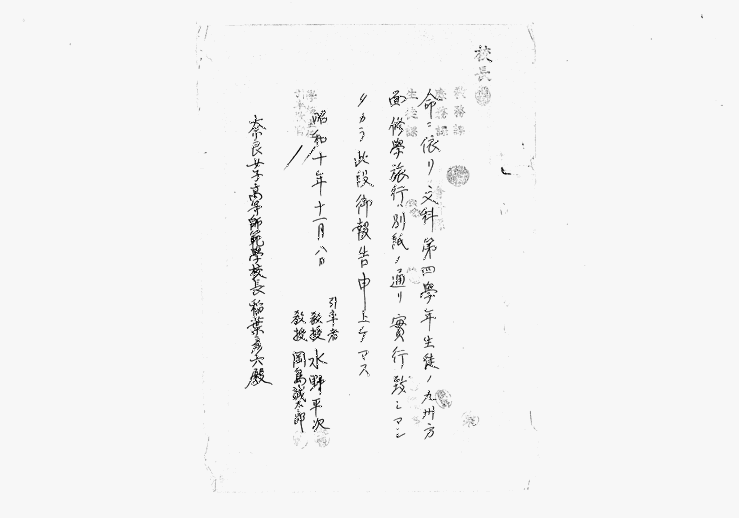 校長
教務課
生徒課
命ニ依リ文科第四學年生徒ノ九州方
面修學旅行ハ別紙ノ通リ實行致シマシ
タカラ此段御報告申上ゲマス
昭和十年十一月八日
引率者
教授 水野平次
教授 岡島誠太郎
奈良女子高等師範學校長稲葉彦六殿